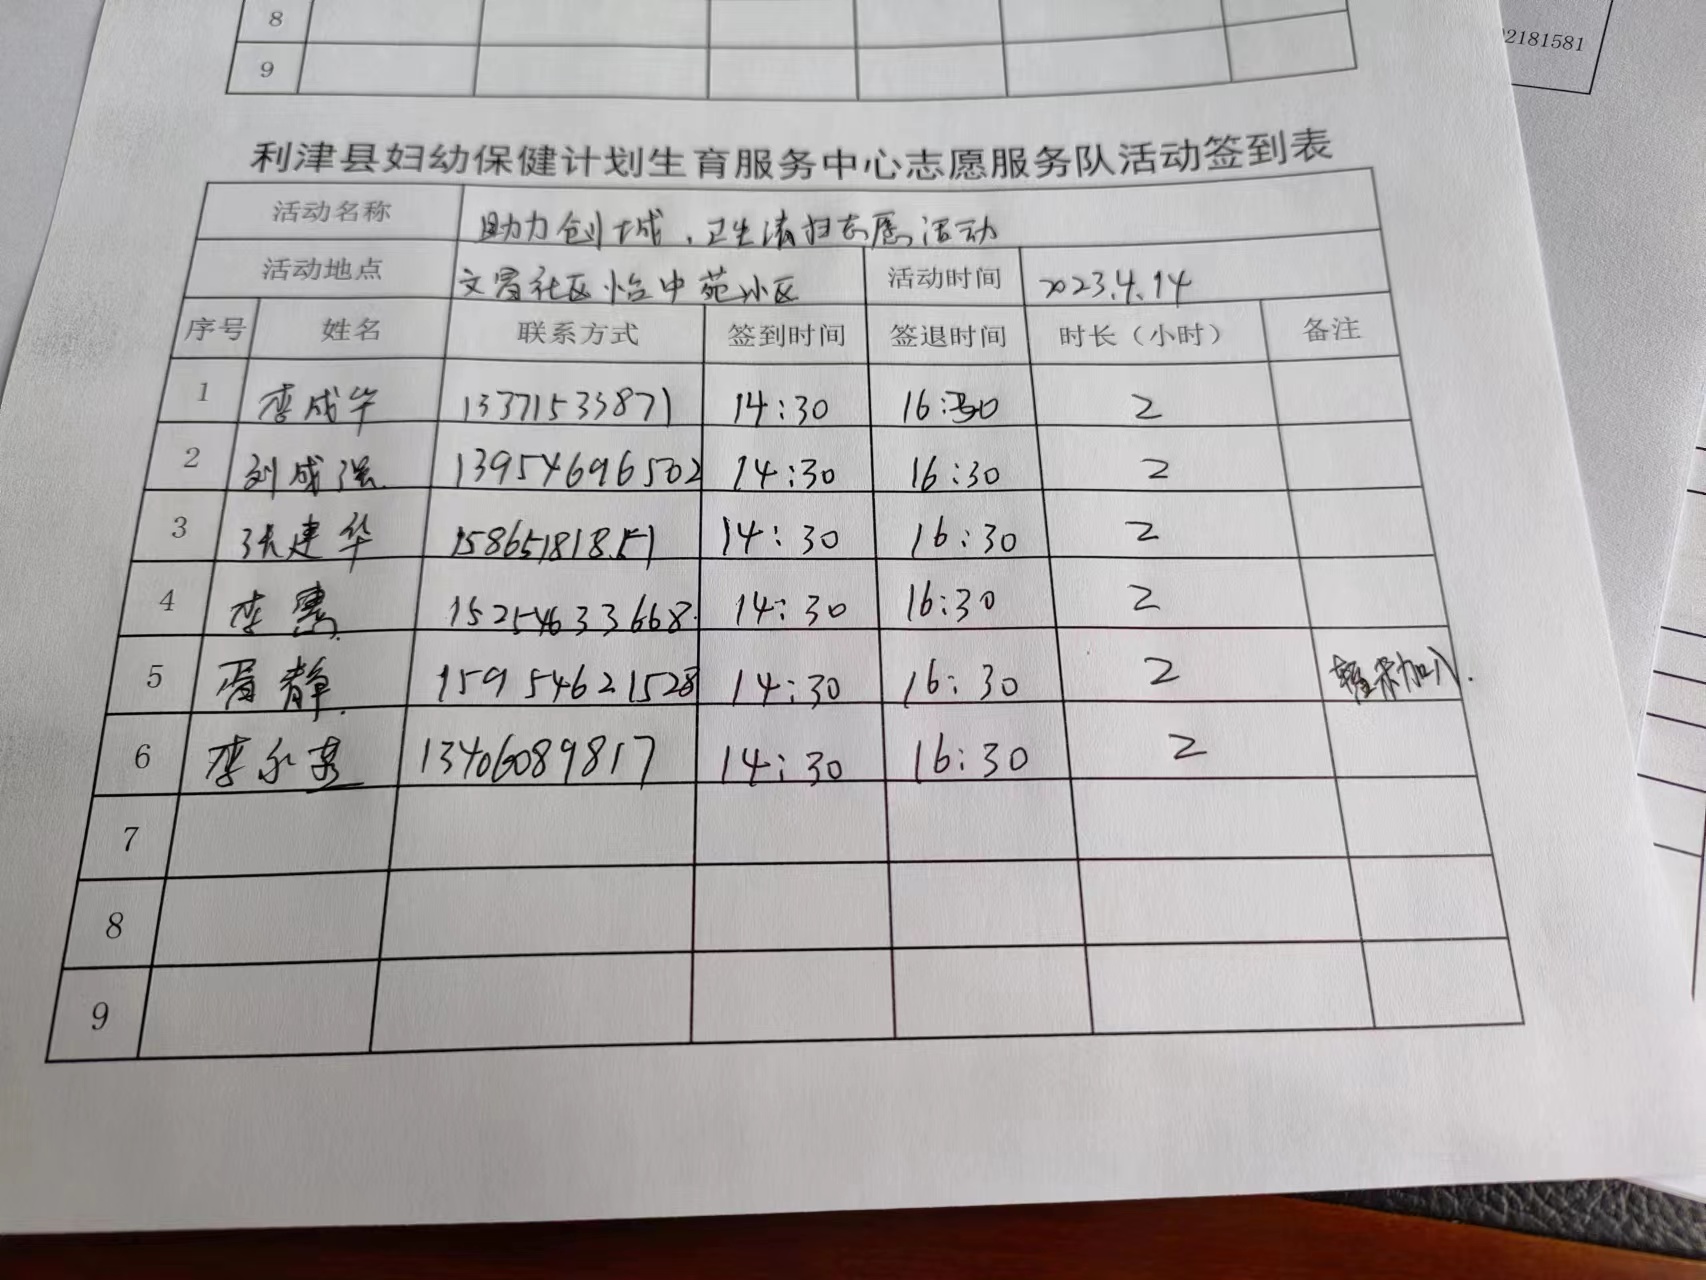 8
9
2181581
利津县妇幼保健计划生育服务中心志愿服务队活动签到表
活动名称 助力创城、卫生清扫志愿活动
活动地点 文昌社区怡中苑小区 活动时间 2023.4.14
序号 姓名 联系方式 签到时间 签退时间 时长（小时） 备注
1 李成华 13371533871 14:30 16:30 2
2 刘成强 13954696502 14:30 16:30 2
3 张建华 15865181851 14:30 16:30 2
4 李惠 15254633668 14:30 16:30 2
5 胥静 15954621528 14:30 16:30 2 未加入.
6 李永 13406089817 14:30 16:30 2
7
8
9